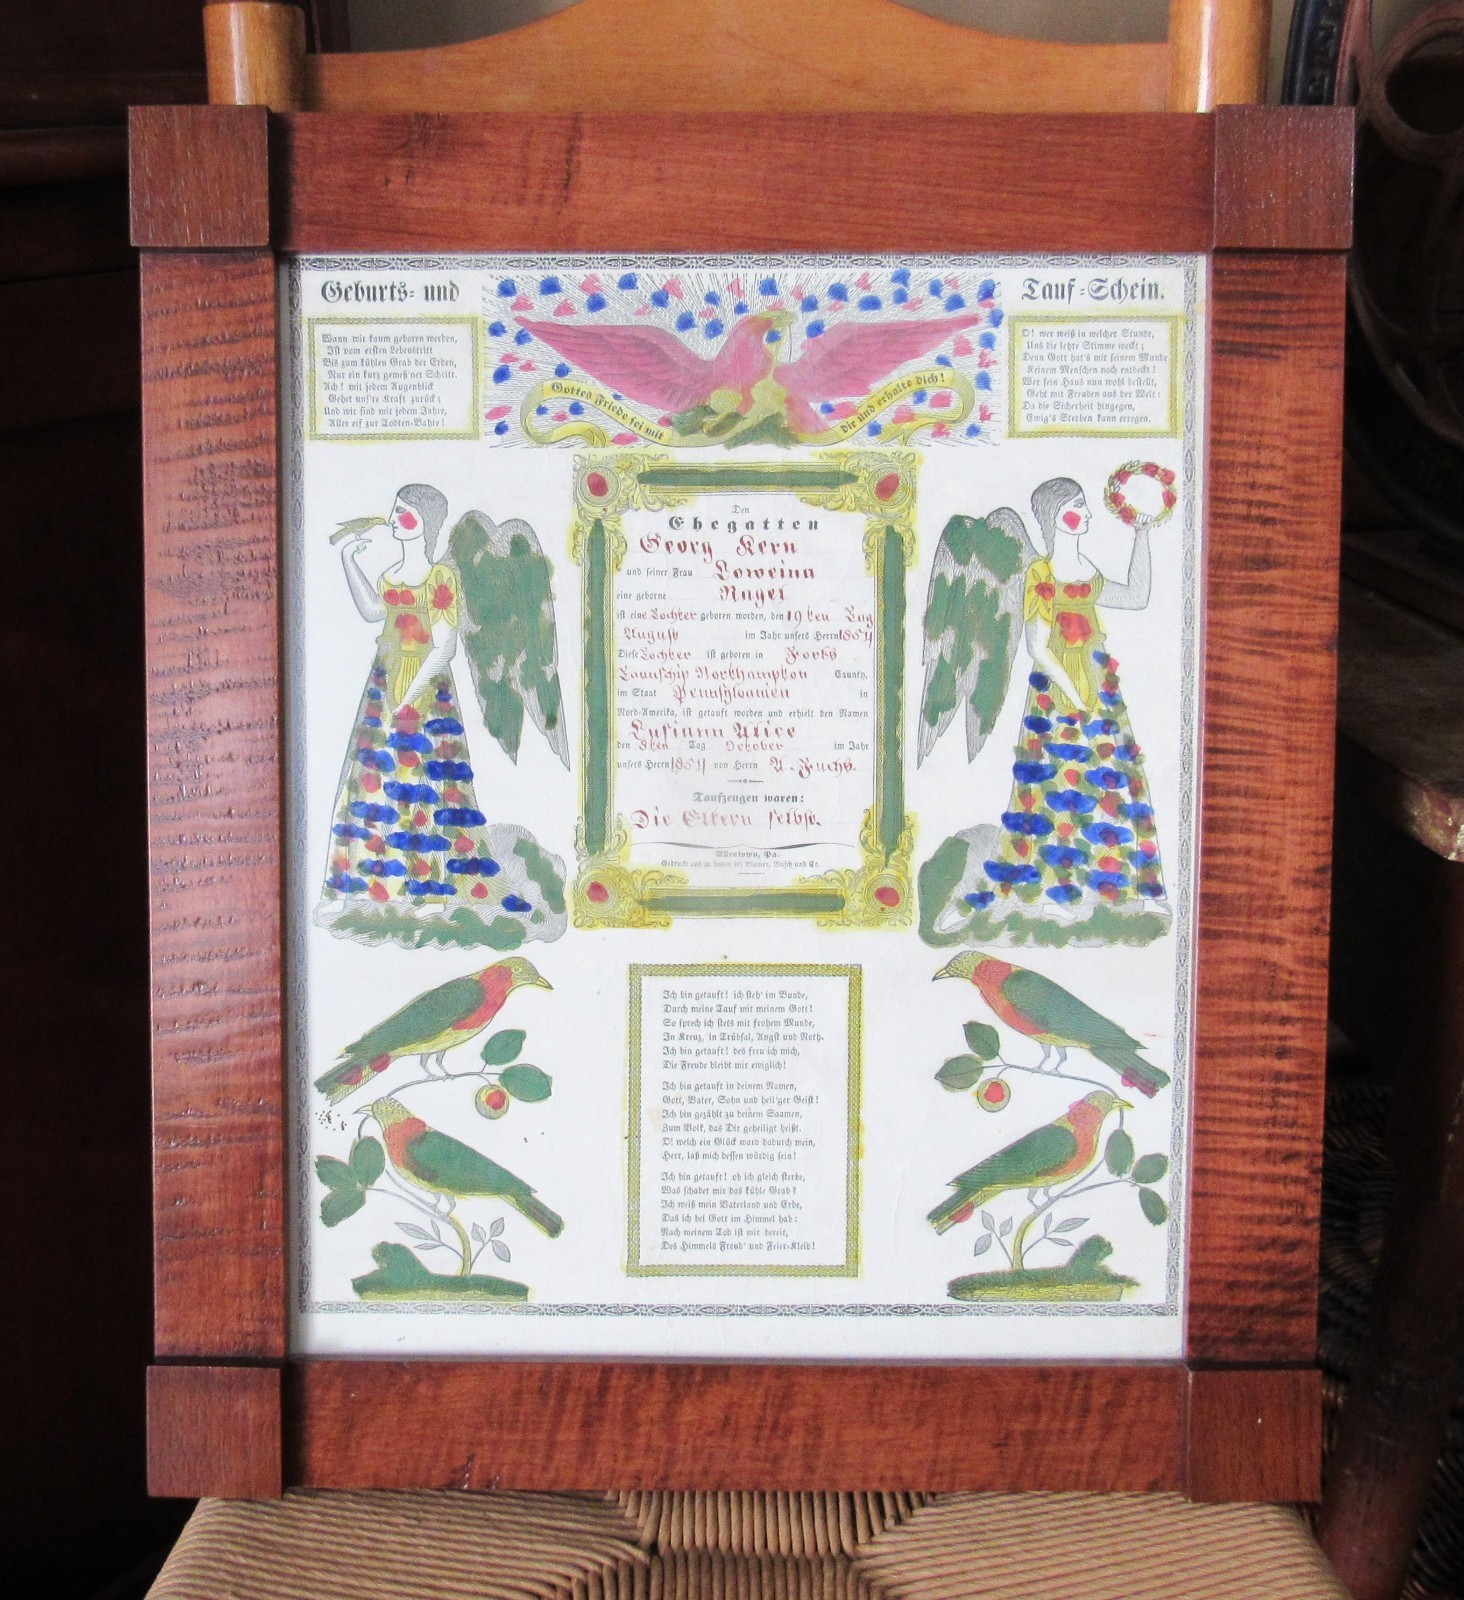 Geburts- und
Tauf-Schein.
Wann wir kaum geboren werden,
Ist vom ersten Lebenstritt
Bis zum kühlen Grab der Erden,
Nur ein kurz gemeß'ner Schritt.
Ach! mit jedem Augenblick
Gehet uns're Kraft zurück;
Und wir sind mit jedem Jahre,
Aller eif zur Todten-Bahre!
Gottes Friede sei mit
dir und erhalte dich!
O! wer weiß in welcher Stunde,
Uns die letzte Stimme weckt;
Denn Gott hat's mit seinem Munde
Keinem Menschen noch entdeckt!
Wer sein Haus nun wohl bestellt,
Geht mit Freuden aus der Welt:
Da die Sicherheit hingegen,
Ewig's Sterben kann erregen.
Den
Ehegatten
Georg Kern
und seiner Frau Loweina
eine geborne Nagel
ist eine Tochter geboren worden, den 19ten Tag
August im Jahr unsers Herrn
Diese Tochter ist geboren in Forks
Taunschip Northampton Caunty,
im Staat Pennsylvanien in
Nord-Amerika, ist getauft worden und erhielt den Namen
Lusiann Alice
den 8ten Tag October im Jahr
unsers Herrn von Herrn A. Fuchs.
Taufzeugen waren:
Die Eltern selbst.
Allentown, Pa.
Gedruckt und zu haben bei Blumer, Busch und Co.
Ich bin getauft! ich steh' im Bunde,
Durch meine Tauf mit meinem Gott!
So sprech ich stets mit frohem Munde,
In Kreuz, in Trübsal, Angst und Noth.
Ich bin getauft! des freu ich mich,
Die Freude bleibt mir ewiglich!
Ich bin getauft in deinem Namen,
Gott, Vater, Sohn und heil'ger Geist!
Ich bin gezählt zu deinem Saamen,
Zum Volk, das Dir geheiligt heißt.
O! welch ein Glück ward dadurch mein,
Herr, laß mich dessen würdig sein!
Ich bin getauft! ob ich gleich sterbe,
Was schadet mir das kühle Grab?
Ich weiß mein Vaterland und Erbe,
Das ich bei Gott im Himmel hab:
Nach meinem Tod ist mir bereit,
Des Himmels Freud' und Feier-Kleid!